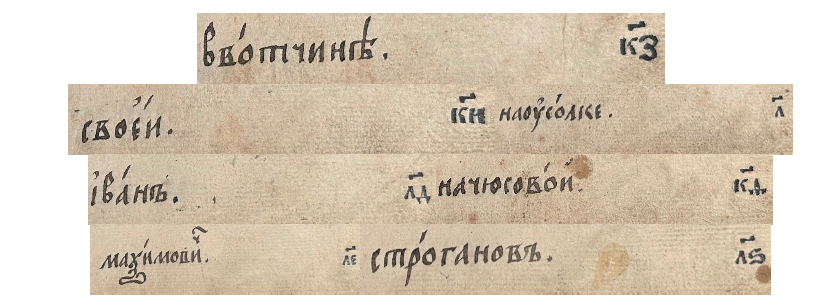 вво́тчинѣ. к҃з
свое́й. к҃н наѹсо́лке. л҃
іва́нъ. л҃д начюсово́й. к҃д
маѯи́мови̾. л҃е стро́гановъ. л҃ѕ